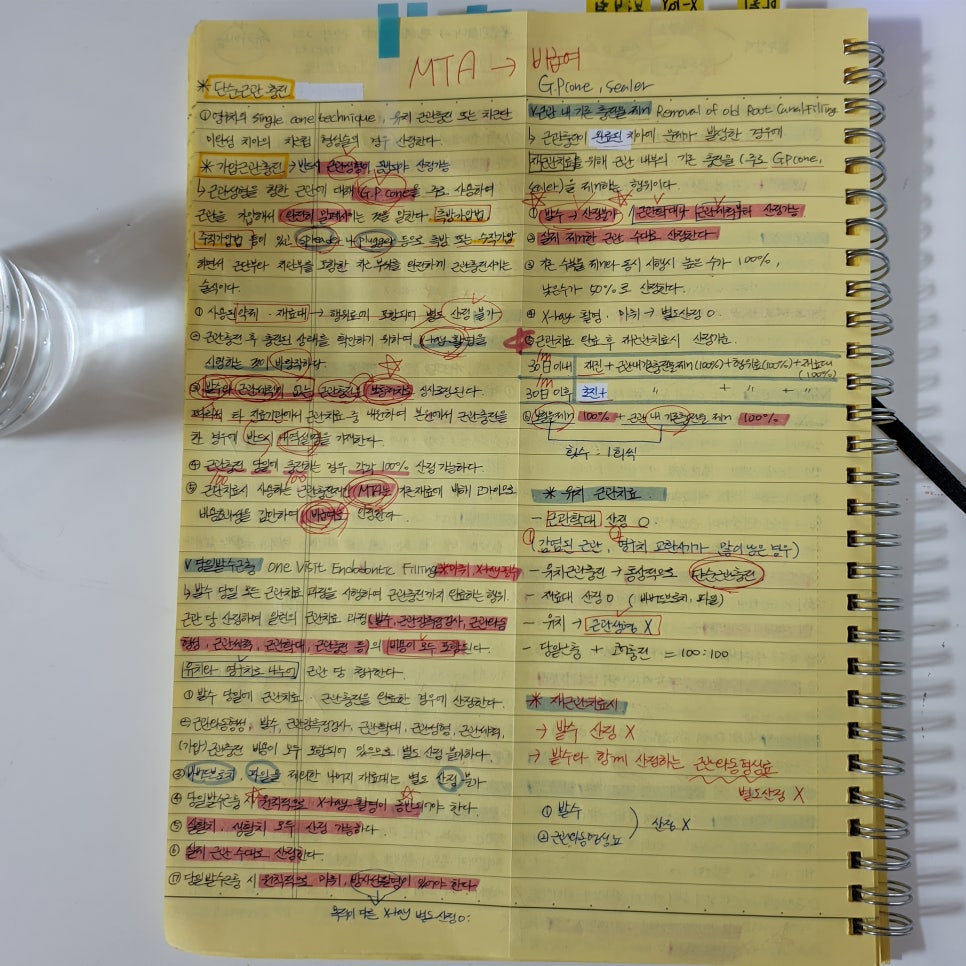 MTA → 비급여
* 단순근관충전
① 영구치의 single cone technique, 유치 근관충전 또는 치근단
미완성 치아의 치근첨 형성술의 경우 산정한다.
* 가압근관충전 → 반드시 근관성형이 동반되야 산정가능
↳ 근관성형을 행한 근관에 대해 G.P cone을 주로 사용하여
근관을 가압해서 완전히 밀폐시키는 것을 말한다. 측방가압법
수직가압법 등이 있고 spreader나 plugger 등으로 측방 또는 수직가압
하면서 근단부와 치관부를 포함한 치근 부위를 완전하게 근관충전시키는
술식이다.
① 사용된 약제·재료대 → 행위료에 포함되어 별도 산정 불가
② 근관충전 후 충전의 상태를 확인하기 위하여 x-ray 촬영을
시행하는 것이 바람직하다.
③ 발수와 근관세척이 없는 근관충전은 심사조정된다.
타 진료기관에서 근관치료 중 내원하여 본원에서 근관충전을
한 경우에 반드시 내역설명을 기재한다.
④ 근관충전 당일에 충전하는 경우 각각 100% 산정 가능하다.
100 100
⑤ 근관치료시 사용하는 근관충전재인 MTA는 기존재료에 비해 고가이므로
비용효과성을 감안하여 비급여로 인정한다.
V 당일발수근충 One Visit Endodontic Filling * 마취, X-ray 필수
↳ 발수 당일 모든 근관치료 과정을 시행하여 근관충전까지 완료하는 행위.
근관 당 산정하며 일련의 근관치료 과정(발수, 근관장측정검사, 근관와동
형성, 근관세척, 근관확대, 근관충전 등)의 비용이 모두 포함된다.
유치와 영구치로 나누어 근관 당 청구한다.
① 발수 당일에 근관치료·근관충전을 완료한 경우에 산정한다.
② 근관와동형성, 발수, 근관장측정검사, 근관확대, 근관성형, 근관세척,
(가압)근관충전 비용이 모두 포함되어 있으므로 별도 산정 불가하다.
③ 바브드브로치, 파일을 제외한 나머지 재료대는 별도 산정 불가
④ 당일발수근충 시 원칙적으로 X-ray 촬영이 동반되어야 한다.
⑤ 실활치, 생활치 모두 산정 가능하다.
⑥ 실제 근관 수대로 산정한다.
⑰ 당일발수근충 시 원칙적으로 마취, 방사선촬영이 있어야 한다.
목적이 다른 X-ray 별도산정 O.
G.P cone, sealer
V 근관 내 기존 충전물 제거 Removal of old Root Canal Filling
↳ 근관충전이 완료된 치아에 문제가 발생한 경우에
재근관치료를 위해 근관 내부의 기존 충전물(주로 G.P cone,
sealer)을 제거하는 행위이다.
① 발수 → 산정불가 / 근관확대나 근관세척부터 산정가능
② 실제 제거한 근관 수대로 산정한다.
③ 기존 수복물 제거와 동시 시행시 높은 수가 100%,
낮은수가 50%로 산정한다.
④ X-ray 촬영·마취 → 별도산정 O.
⑤ 근관치료 완료 후 재근관치료시 산정가능.
30일 이내 재진 + 근관내기존충전물제거(100%) + 행위료(100%) + 재료대(100%)
30일 이후 초진 + 〃 + 〃 + 〃
⑥ 보철물제거 100% + 근관 내 기존충전물 제거 100%
횟수 : 1회씩
* 유치 근관치료
- 근관확대 산정 O.
(감염된 근관, 영구치 교환시기가 많이 남은 경우)
- 유치근관충전 → 통상적으로 단순근관충전
- 재료대 산정 O (바브드브로치, 파일)
- 유치 → 근관성형 X
- 당일발근충 + 충전 = 100:100
* 재근관치료시
→ 발수 산정 X
→ 발수와 함께 산정하는 근관와동형성료
별도산정 X
① 발수
② 근관와동형성료
산정 X